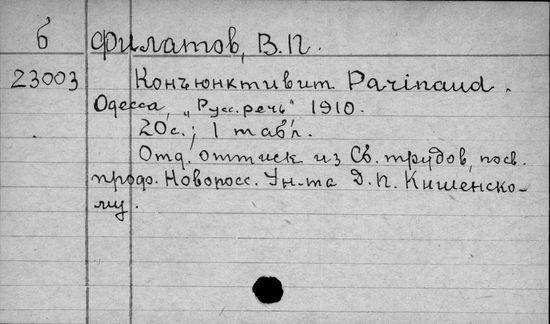 б Филатов, В.П.
23003 Конъюнктивит Parinaud.
Одесса, „Русс. речь" 1910.
20с.; 1 табл.
Отд. оттиск из Сб. трудов, посв.
проф. Новоросс. Ун-та Д.П. Кишенско-
му.